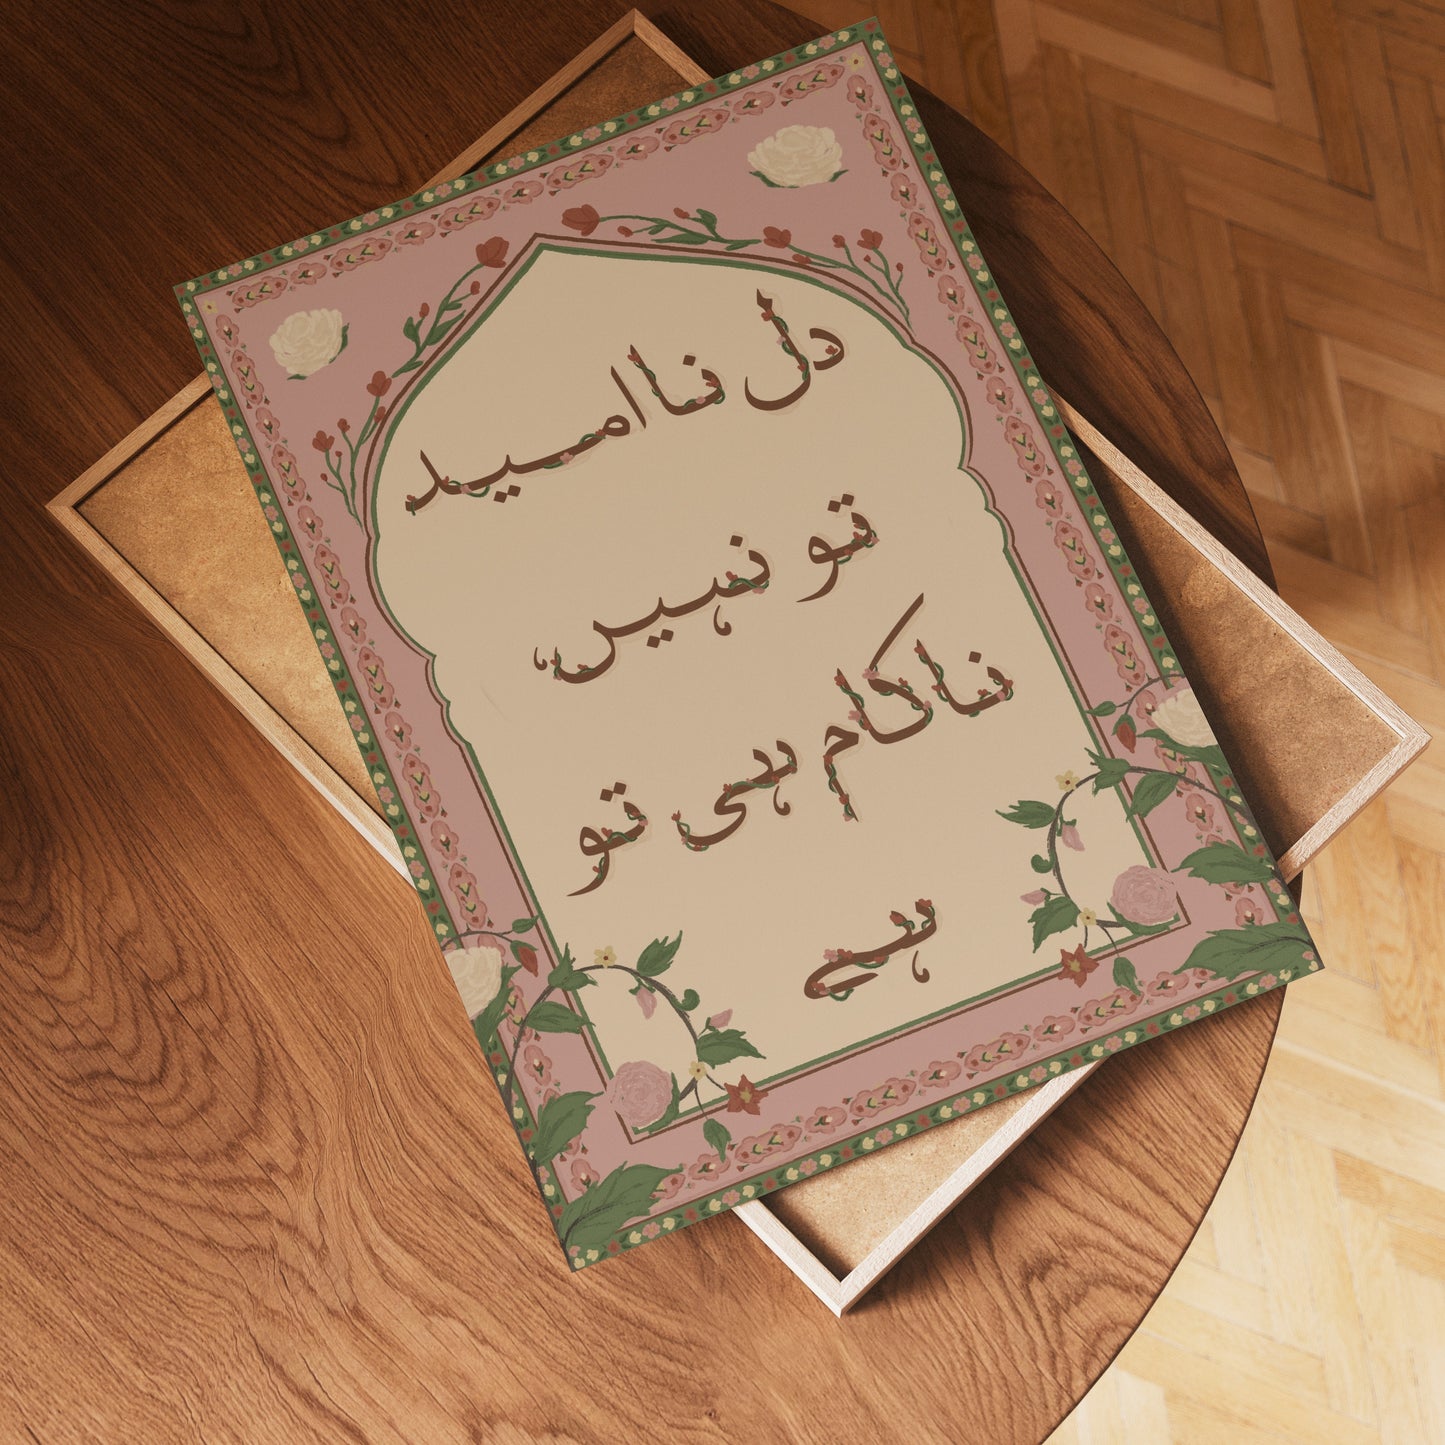 دل ناامید
تو نہیں،
ناکام ہی تو
ہے